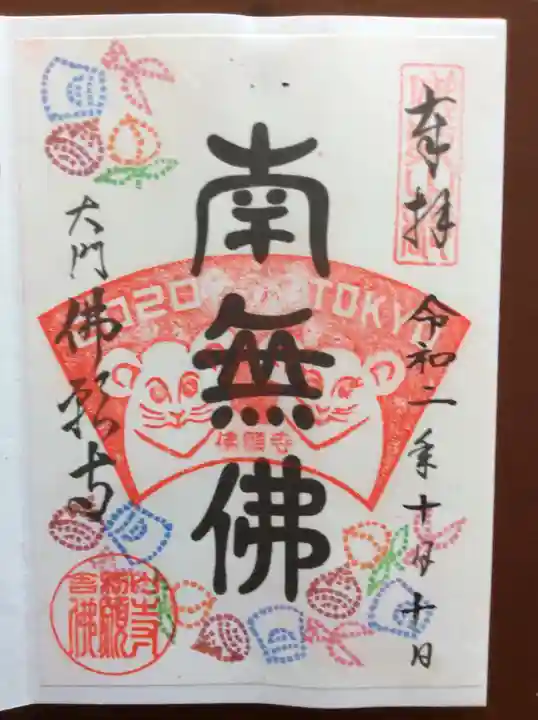 奉拝
令和二年十月十日
南無佛
2020 TOKYO
佛願寺
大門佛願寺